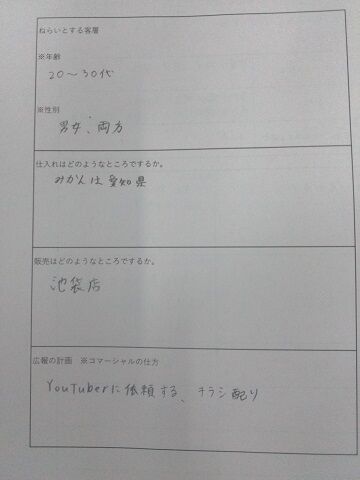 ねらいとする客層
※年齢
20～30代
※性別
男女、両方
仕入れはどのようなところですか。
みかんは愛知県
販売はどのようなところでするか。
池袋店
広報の計画　※コマーシャルの仕方
YouTuberに依頼する、チラシ配り